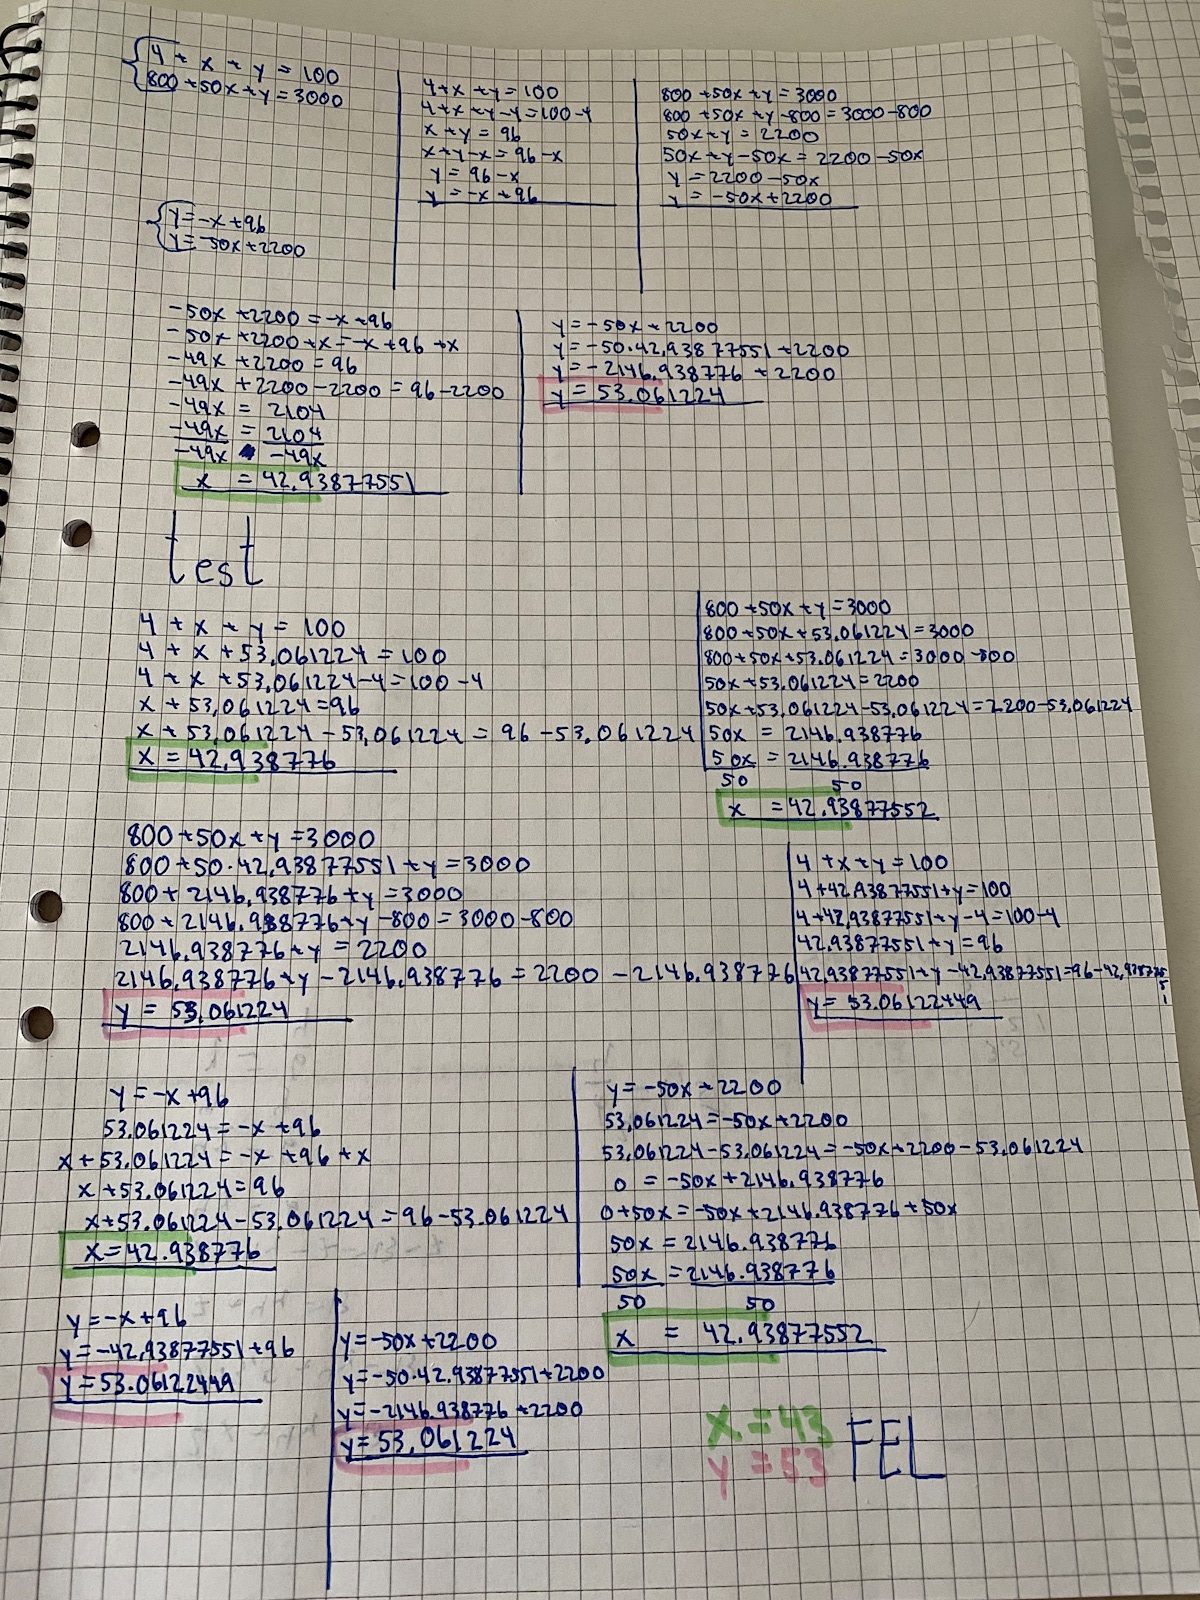 4 + x + y = 100
800 + 50x + y = 3000
4 + x + y = 100
4 + x + y - 4 = 100 - 4
x + y = 96
x + y - x = 96 - x
y = 96 - x
y = -x + 96
800 + 50x + y = 3000
800 + 50x + y - 800 = 3000 - 800
50x + y = 2200
50x + y - 50x = 2200 - 50x
y = 2200 - 50x
y = -50x + 2200
y = -x + 96
y = -50x + 2200
-50x + 2200 = -x + 96
-50x + 2200 + x = -x + 96 + x
-49x + 2200 = 96
-49x + 2200 - 2200 = 96 - 2200
-49x = 2104
-49x = 2104
-49x -49x
x = 42,93877551
y = -50x + 2200
y = -50·42,93877551 + 2200
y = -2146,938776 + 2200
y = 53.061224
test
4 + x + y = 100
4 + x + 53,061224 = 100
4 + x + 53,061224 - 4 = 100 - 4
x + 53,061224 = 96
x + 53,061224 - 53,061224 = 96 - 53,061224
x = 42,938776
800 + 50x + y = 3000
800 + 50x + 53,061224 = 3000
800 + 50x + 53.061224 = 3000 - 800
50x + 53.061224 = 2200
50x + 53,061224 - 53,061224 = 2200 - 53,061224
50x = 2146,938776
50x = 2146.938776
50 50
x = 42,93877552
800 + 50x + y = 3000
800 + 50·42,93877551 + y = 3000
800 + 2146,938776 + y = 3000
800 + 2146,938776 + y - 800 = 3000 - 800
2146,938776 + y = 2200
2146,938776 + y - 2146,938776 = 2200 - 2146,938776
y = 53,061224
4 + x + y = 100
4 + 42,93877551 + y = 100
4 + 42,93877551 + y - 4 = 100 - 4
42,93877551 + y = 96
42,93877551 + y - 42,93877551 = 96 - 42,93877551
y = 53.06122449
y = -x + 96
53.061224 = -x + 96
x + 53.061224 = -x + 96 + x
x + 53.061224 = 96
x + 53.061224 - 53.061224 = 96 - 53.061224
x = 42.938776
y = -50x + 2200
53,061224 = -50x + 2200
53.061224 - 53.061224 = -50x + 2200 - 53.061224
0 = -50x + 2146,938776
0 + 50x = -50x + 2146.938776 + 50x
50x = 2146.938776
50x = 2146.938776
50 50
x = 42.93877552
y = -x + 96
y = -42,93877551 + 96
y = 53.06122449
y = -50x + 2200
y = -50·42.93877551 + 2200
y = -2146.938776 + 2200
y = 53,061224
x = 43
y = 53
FEL